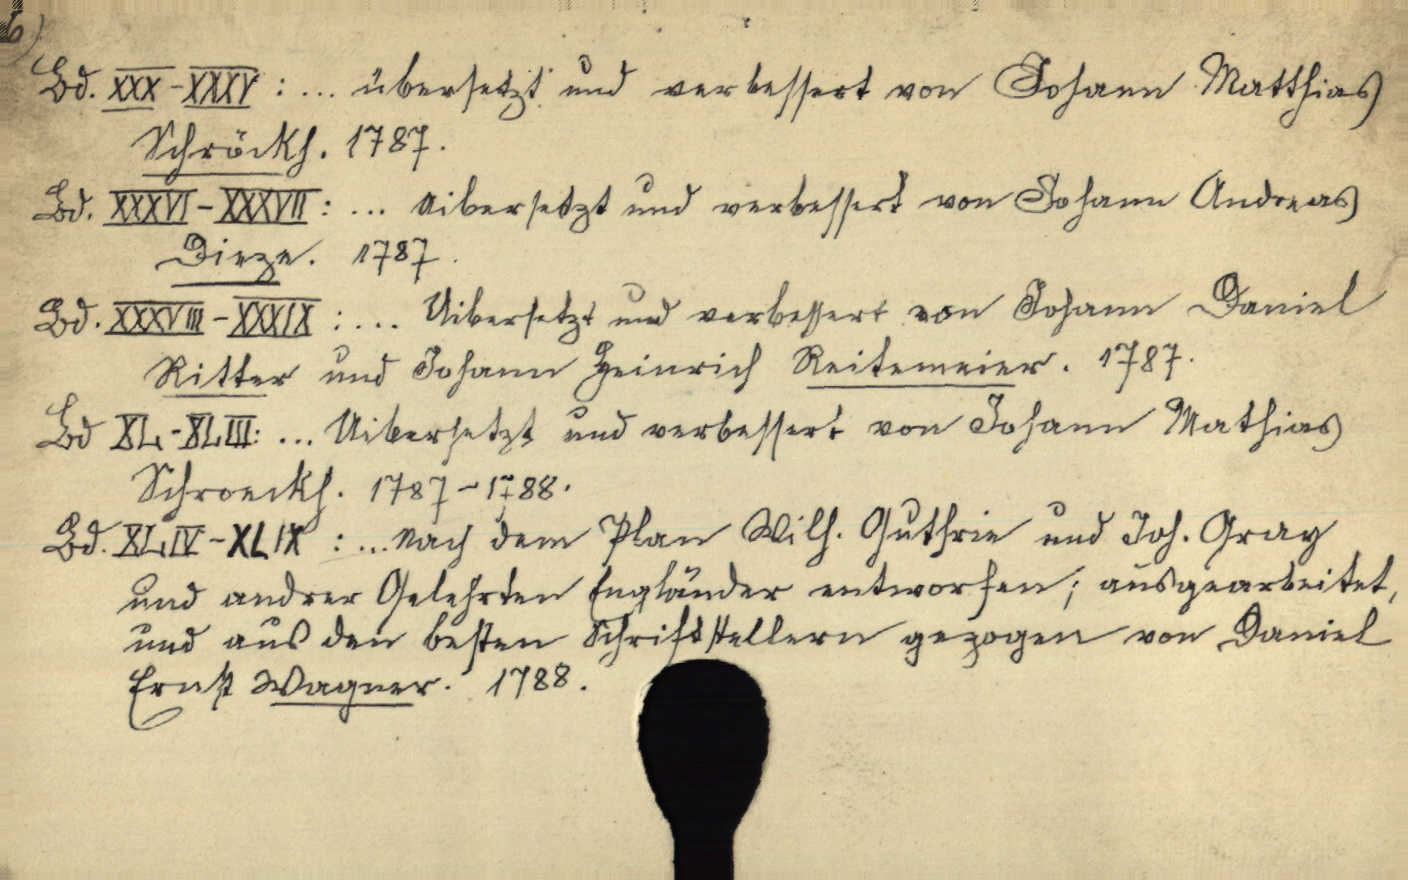 6)
Bd. XXX-XXXV: ... übersetzt und verbessert von Johann Matthias
Schröckh. 1787.
Bd. XXXVI-XXXVII: ... Uibersetzt und verbessert von Johann Andreas
Dieze. 1787.
Bd. XXXVIII-XXXIX: ... Uibersetzt und verbessert von Johann Daniel
Ritter und Johann Heinrich Reitemeier. 1787.
Bd XL-XLIII: ... Uibersetzt und verbessert von Johann Mathias
Schroeckh. 1787-1788.
Bd. XLIV-XLIX: ... Nach dem Plan Wilh. Guthrie und Joh. Gray
und andrer Gelehrten Engländer entworfen; ausgearbeitet,
und aus den besten Schriftstellern gezogen von Daniel
Ernst Wagner. 1788.